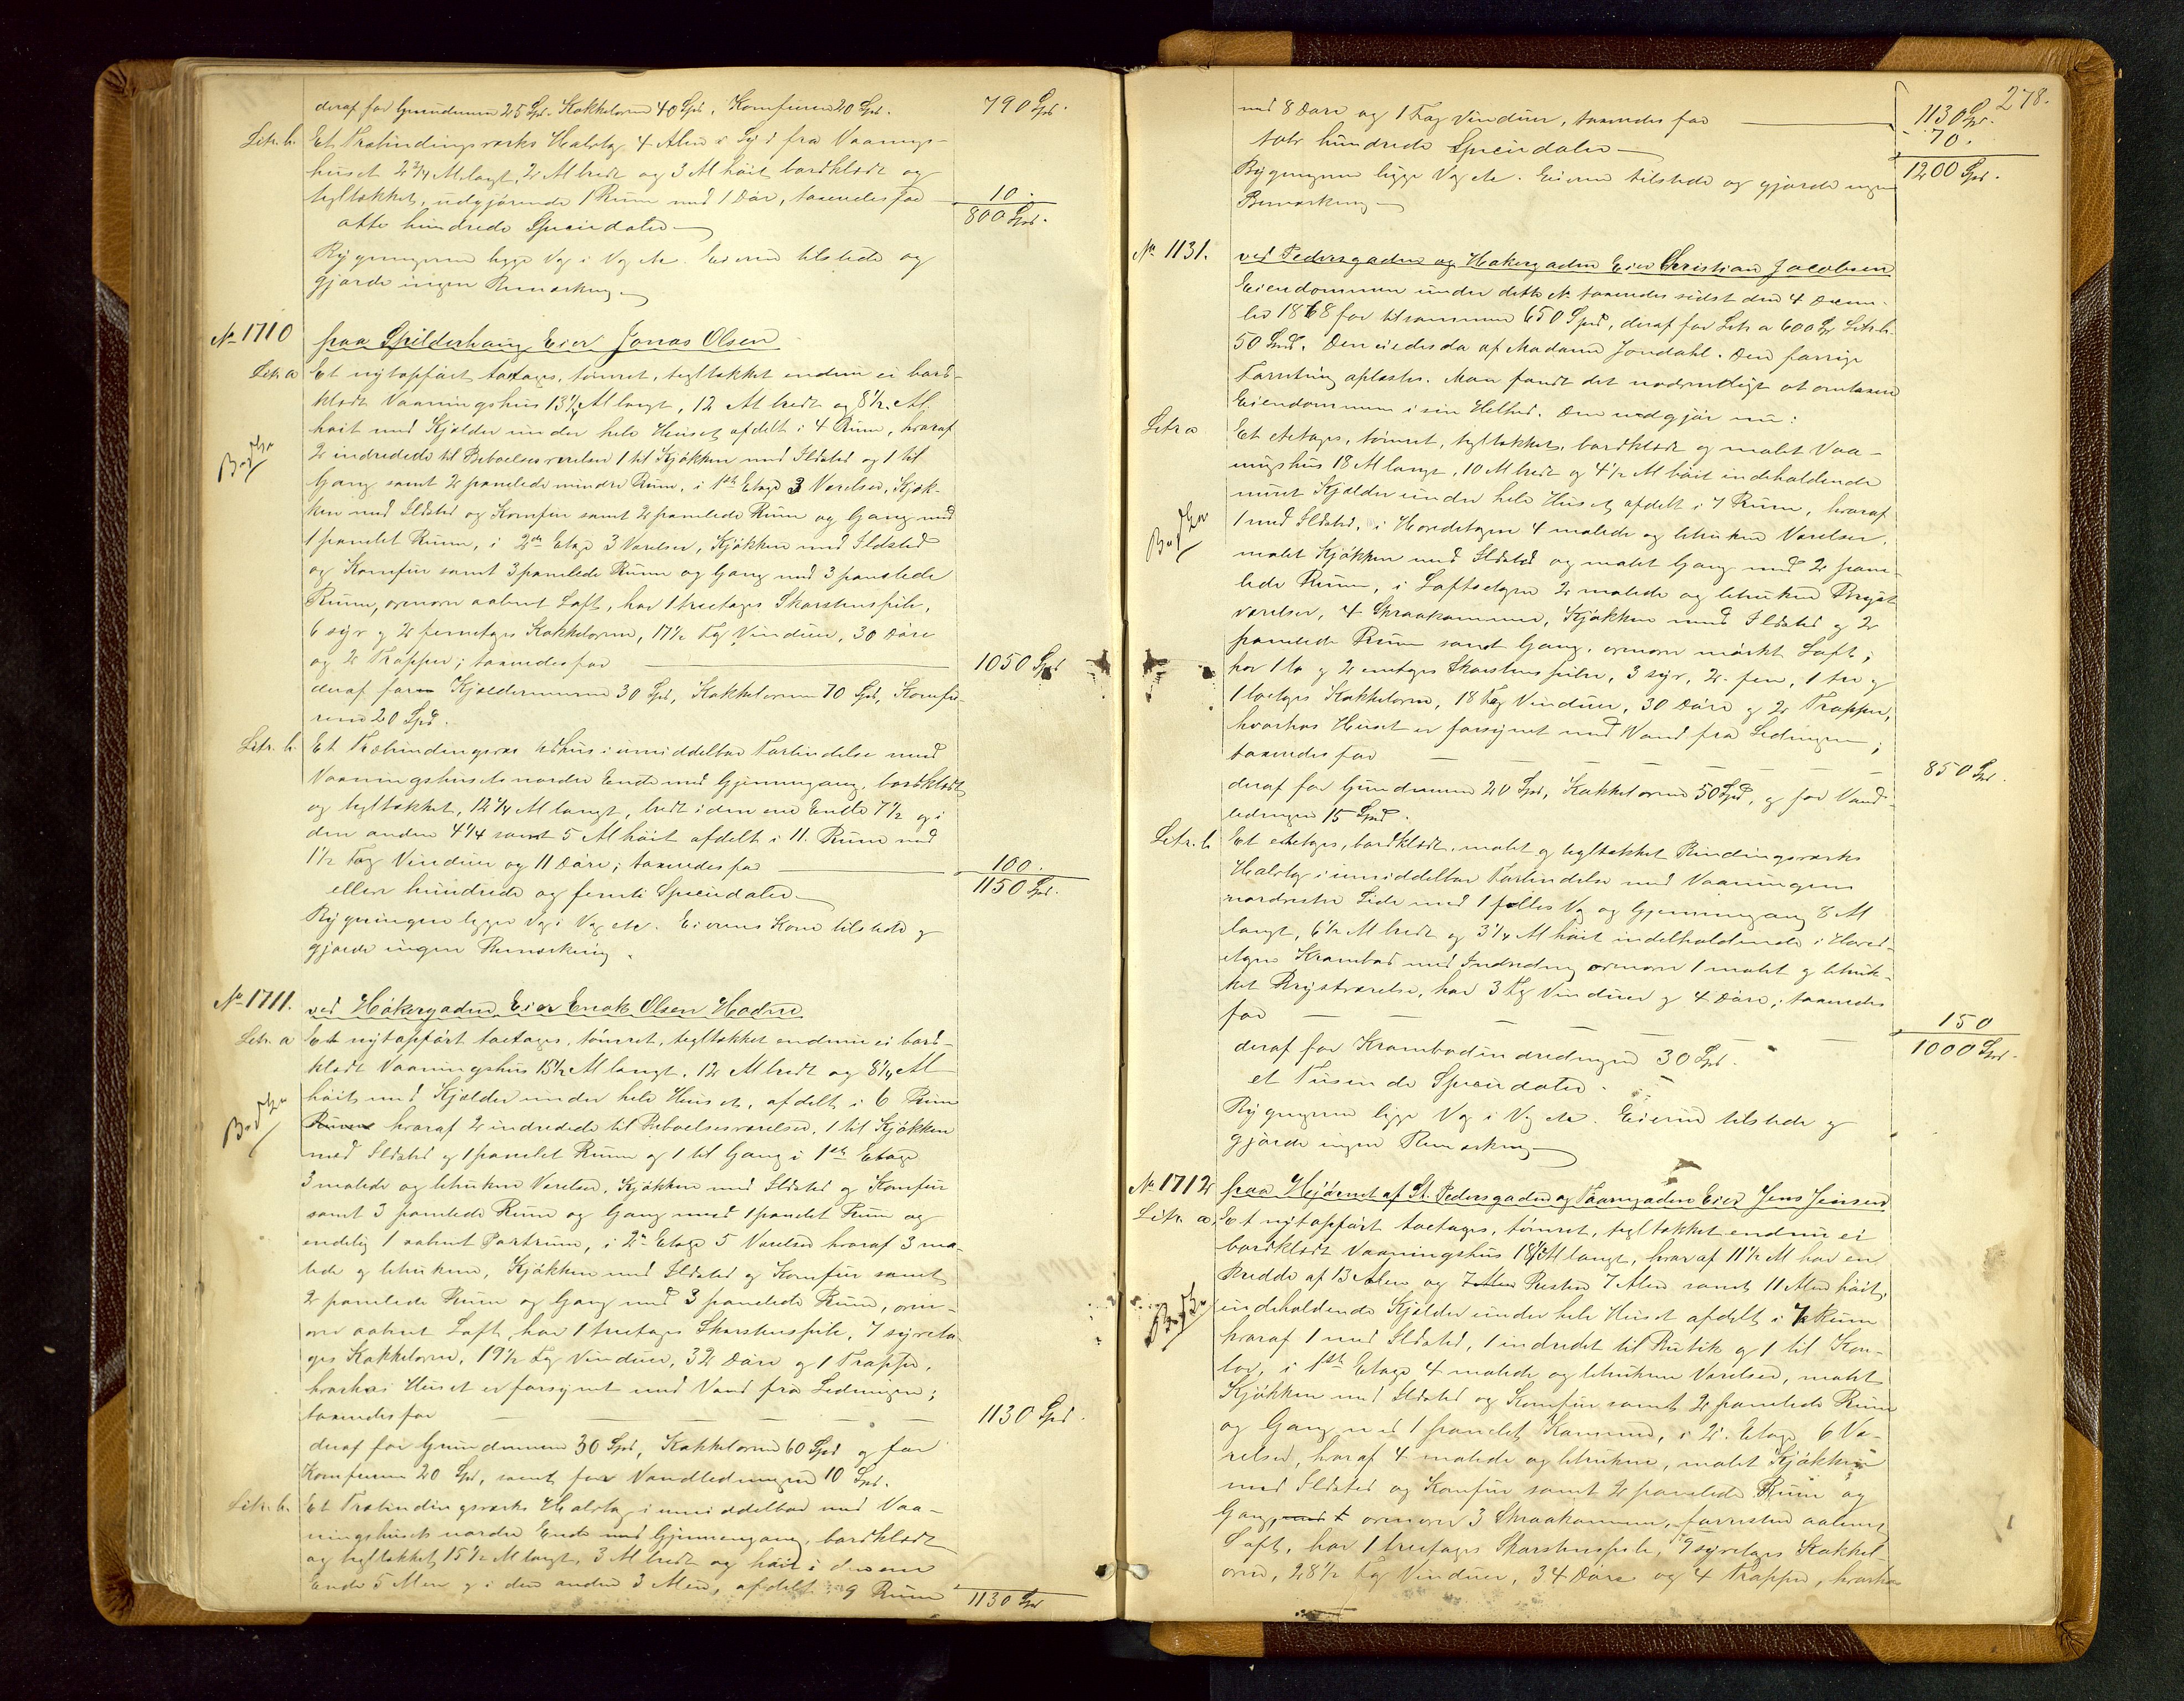 deraf for Grundmuren 25 Spd. Kakkelovne 40 Spd. Komfuren 20 Spd. 790 Spd.
Litr. b. Et Træbindingsværks Halvtag 4 Alen i Syd fra Vaanings-
huset 2 3/4 Al langt, 2 Al bredt og 3 Al høit bordklædt og
tegltækket, udgjørende 1 Rum med 1 Dør, taxeredes for 10.
otte hundrede Speciedaler 800 Spd.
Bygningerne ligge Væg i Væg etc. Eieren tilstede og
gjorde ingen Bemærkning
No 1710 paa Spilderhaug Eier Jonas Olsen
Litr. a Et nyt opført toetages, tømret, tegltækket endnu ei bord-
klædt Vaaningshus 13 1/4 Al langt, 12 Al bredt og 8 1/2 Al
høit med Kjælder under hele Huset afdelt i 4 Rum, hvoraf
2 indredede til Beboelsesværelser 1 til Kjøkken med Ildsted og 1 til
Gang samt 2 panelede mindre Rum, i 1ste Etage 3 Værelser, Kjøk-
ken med Ildsted og Komfur samt 2 panelede Rum og Gang med
1 panelet Rum, i 2den Etage 3 Værelser, Kjøkken med Ildsted
og Komfur samt 3 panelede Rum og Gang med 3 panelede
Rum, ovenover aabent Loft, har 1 treetages Skorstenspibe,
6 syv og 2 femetages Kakkelovne, 17 1/2 Fag Vinduer, 30 Døre
og 2 Trapper; taxeredes for 1050 Spd
deraf for Kjældermuren 30 Spd, Kakkelovnene 70 Spd, Komfu-
rene 20 Spd.
Litr. b Et Træbindingsværks Udhus i umiddelbar Forbindelse med
Vaaningshusets nordre Ende med Gjennemgang, bordklædt
og tegltækket, 12 1/4 Al langt, bredt i den ene Ende 7 1/2 og i
den anden 4 1/4 samt 5 Al høit afdelt i 11 Rum med
1 1/2 Fag Vinduer og 11 Døre; taxeredes for 100.
elleve hundrede og femti Speciedaler 1150 Spd.
Bygningen ligger Væg i Væg etc. Eierens Kone tilstede og
gjorde ingen Bemærkning.
No 1711. ved Høkergaden Eier Enok Olsen Hadne
Litr. a Et nyt opført toetages, tømret, tegltækket endnu ei bord-
klædt Vaaningshus 15 1/2 Al langt, 12 Al bredt og 8 1/4 Al
høit med Kjælder under hele Huset, afdelt i 6 Rum
Rum hvoraf 2 indredede til Beboelsesværelser, 1 til Kjøkken
med Ildsted og 1 panelet Rum og 1 til Gang i 1ste Etage
3 malede og betrukne Værelser, Kjøkken med Ildsted og Komfur
samt 3 panelede Rum og Gang med 1 panelet Rum og
endelig 1 aabent Portrum, i 2n Etage 5 Værelser hvoraf 3 ma-
lede og betrukne, Kjøkken med Ildsted og Komfur samt
2 panelede Rum og Gang med 3 panelede Rum, oven-
over aabent Loft, har 1 treetages Skorstenspibe, 7 syveta-
ges Kakkelovne, 19 1/2 Fag Vinduer, 32 Døre og 1 Trappe,
hvorhos Huset er forsynet med Vand fra Ledningen;
taxeredes for 1130 Spd.
deraf for Grundmuren 30 Spd, Kakkelovne 60 Spd og for
Komfuren 20 Spd, samt for Vandledningen 10 Spd.
Litr. b. Et Træbindingsværks Halvtag i umiddelbar med Vaa-
ningshusets nordre Ende med Gjennemgang, bordklædt
og tegltækket, 15 1/2 Al langt, 3 Al bredt og høit i den ene
Ende 5 Alen og i den anden 3 Alen, afdelt i 9 Rum 1130 Spd
278.
med 8 Døre og 1 Fag Vinduer, taxeredes for 1130 Spd. 70.
tolv hundrede Speciedaler 1200 Spd.
Bygningerne ligge Væg etc. Eieren tilstede og gjorde ingen
Bemærkning
No 1131. ved Pedersgaden og Høkergaden Eier Christian Jacobsen
Eiendommen under dette No taxeredes sidst den 4 Decem-
ber 1868 for tilsammen 650 Spd, deraf for Litr a 600 Spd Litr b.
50 Spd. Den eiedes da af Madame Jondahl. Den forrige
Forretning oplæstes. Man fandt det nødvendigt at omtaxere
Eiendommen i sin Helhed. Den udgjør nu:
Litr a Et etetages, tømret, tegltækket, bordklædt og malet Vaa-
ningshus 18 Al langt, 10 Al bredt og 4 1/2 Al høit indeholdende
muret Kjælder under hele Huset afdelt i 7 Rum, hvoraf
1 med Ildsted, i Hovedetagen 4 malede og betrukne Værelser,
malet Kjøkken med Ildsted og malet Gang med 2 pane-
lede Rum, i Loftsetagen 2 malede og betrukne Bryst-
værelser, 4 Skraakammer, Kjøkken med Ildsted og 2
panelede Rum samt Gang, ovenover mørkt Loft;
har 1 to og 2 enetages Skorstenspiber, 3 syv, 2 fem, 1 tre og
1 toetages Kakkelovne, 18 Fag Vinduer, 30 Døre og 2 Trapper,
hvorhos Huset er forsynet med Vand fra Ledningen;
taxeredes for 850 Spd.
deraf for Grundmuren 20 Spd, Kakkelovne 50 Spd, og for Vand-
ledningen 15 Spd.
Litr. b Et etetages, bordklædt, malet og tegltækket Bindingsværks
Halvtag i umiddelbar Forbindelse med Vaaningens
nordvestre Side med 1 fælles Væg og Gjennemgang 8 Al
langt, 6 1/2 Al bredt og 3 1/4 Al høit indeholdende i Hoved-
etagen Krambod med Indredning ovenover 1 malet og betruk-
ket Brystværelse, har 3 Fag Vinduer og 4 Døre; taxeredes
for 150
deraf for Krambodindredningen 30 Spd. 1000 Spd.
et Tusinde Speciedaler.
Bygningerne ligge Væg i Væg etc. Eieren tilstede og
gjorde ingen Bemærkning
No 1712 paa Hjørnet af St. Pedersgaden og Taarngaden Eier Jens Jensen
Litr. a. Et nyt opført toetages, tømret, tegltækket endnu ei
bordklædt Vaaningshus 18 1/2 Al langt, hvoraf 11 1/2 Al har en
Bredde af 13 Alen og 7 Alen Resten 7 Alen samt 11 Alen høit,
indeholdende Kjælder under hele Huset afdelt i 7 Rum
hvoraf 1 med Ildsted, 1 indredet til Butik og 1 til Kon-
tor, i 1ste Etage 4 malede og betrukne Værelser, malet
Kjøkken med Ildsted og Komfur samt 2 panelede Rum
og Gang med 1 panelet Kammer, i 2. Etage 6 Væ-
relser, hvoraf 4 malede og betrukne, malet Kjøkken
med Ildsted og Komfur samt 2 panelede Rum og
Gang, med 1 ovenover 3 Skraakammer, forresten aabent
Loft, har 1 treetages Skorstenspibe, 9 syvetages Kakkel-
ovne, 28 1/2 Fag Vinduer, 34 Døre og 4 Trapper, hvorhos